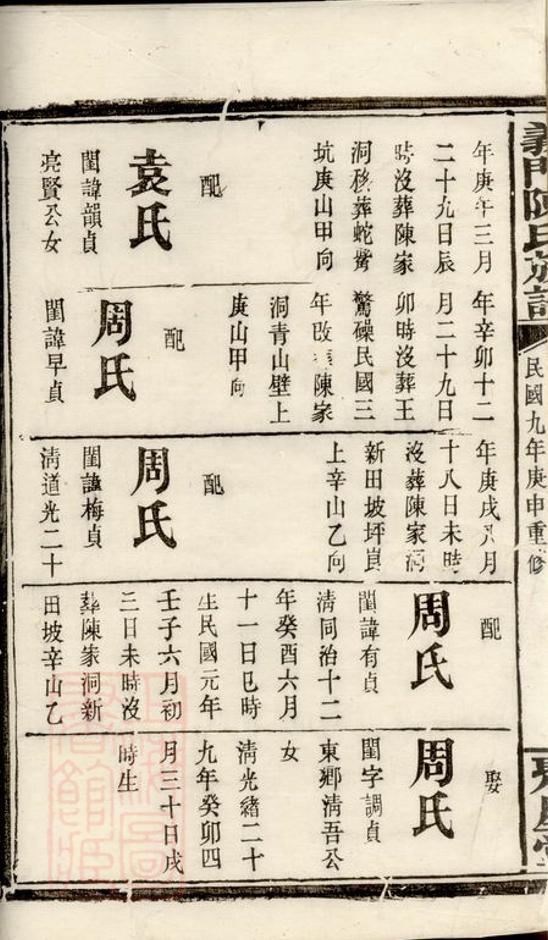 義門陳氏族譜
民國九年庚申重修
年庚午三月
二十九日辰
時沒葬陳家
洞移葬蛇形
坑庚山甲向
配
袁氏
閨諱韻貞
亮賢公女
年辛卯十二
月二十九日
卯時沒葬王
鷲磉民國三
年改葬陳家
洞青山壁上
庚山甲向
配
周氏
閨諱早貞
年庚戌八月
十八日未時
沒葬陳家洞
新田坡坪崀
上辛山乙向
配
周氏
閨諱梅貞
清道光二十
配
周氏
閨諱有貞
清同治十二
年癸酉六月
十一日巳時
生民國元年
壬子六月初
三日未時沒
葬陳家洞新
田坡辛山乙
娶
周氏
閨字調貞
東鄉清吾公
女
清光緒二十
九年癸卯四
月三十日戌
時生